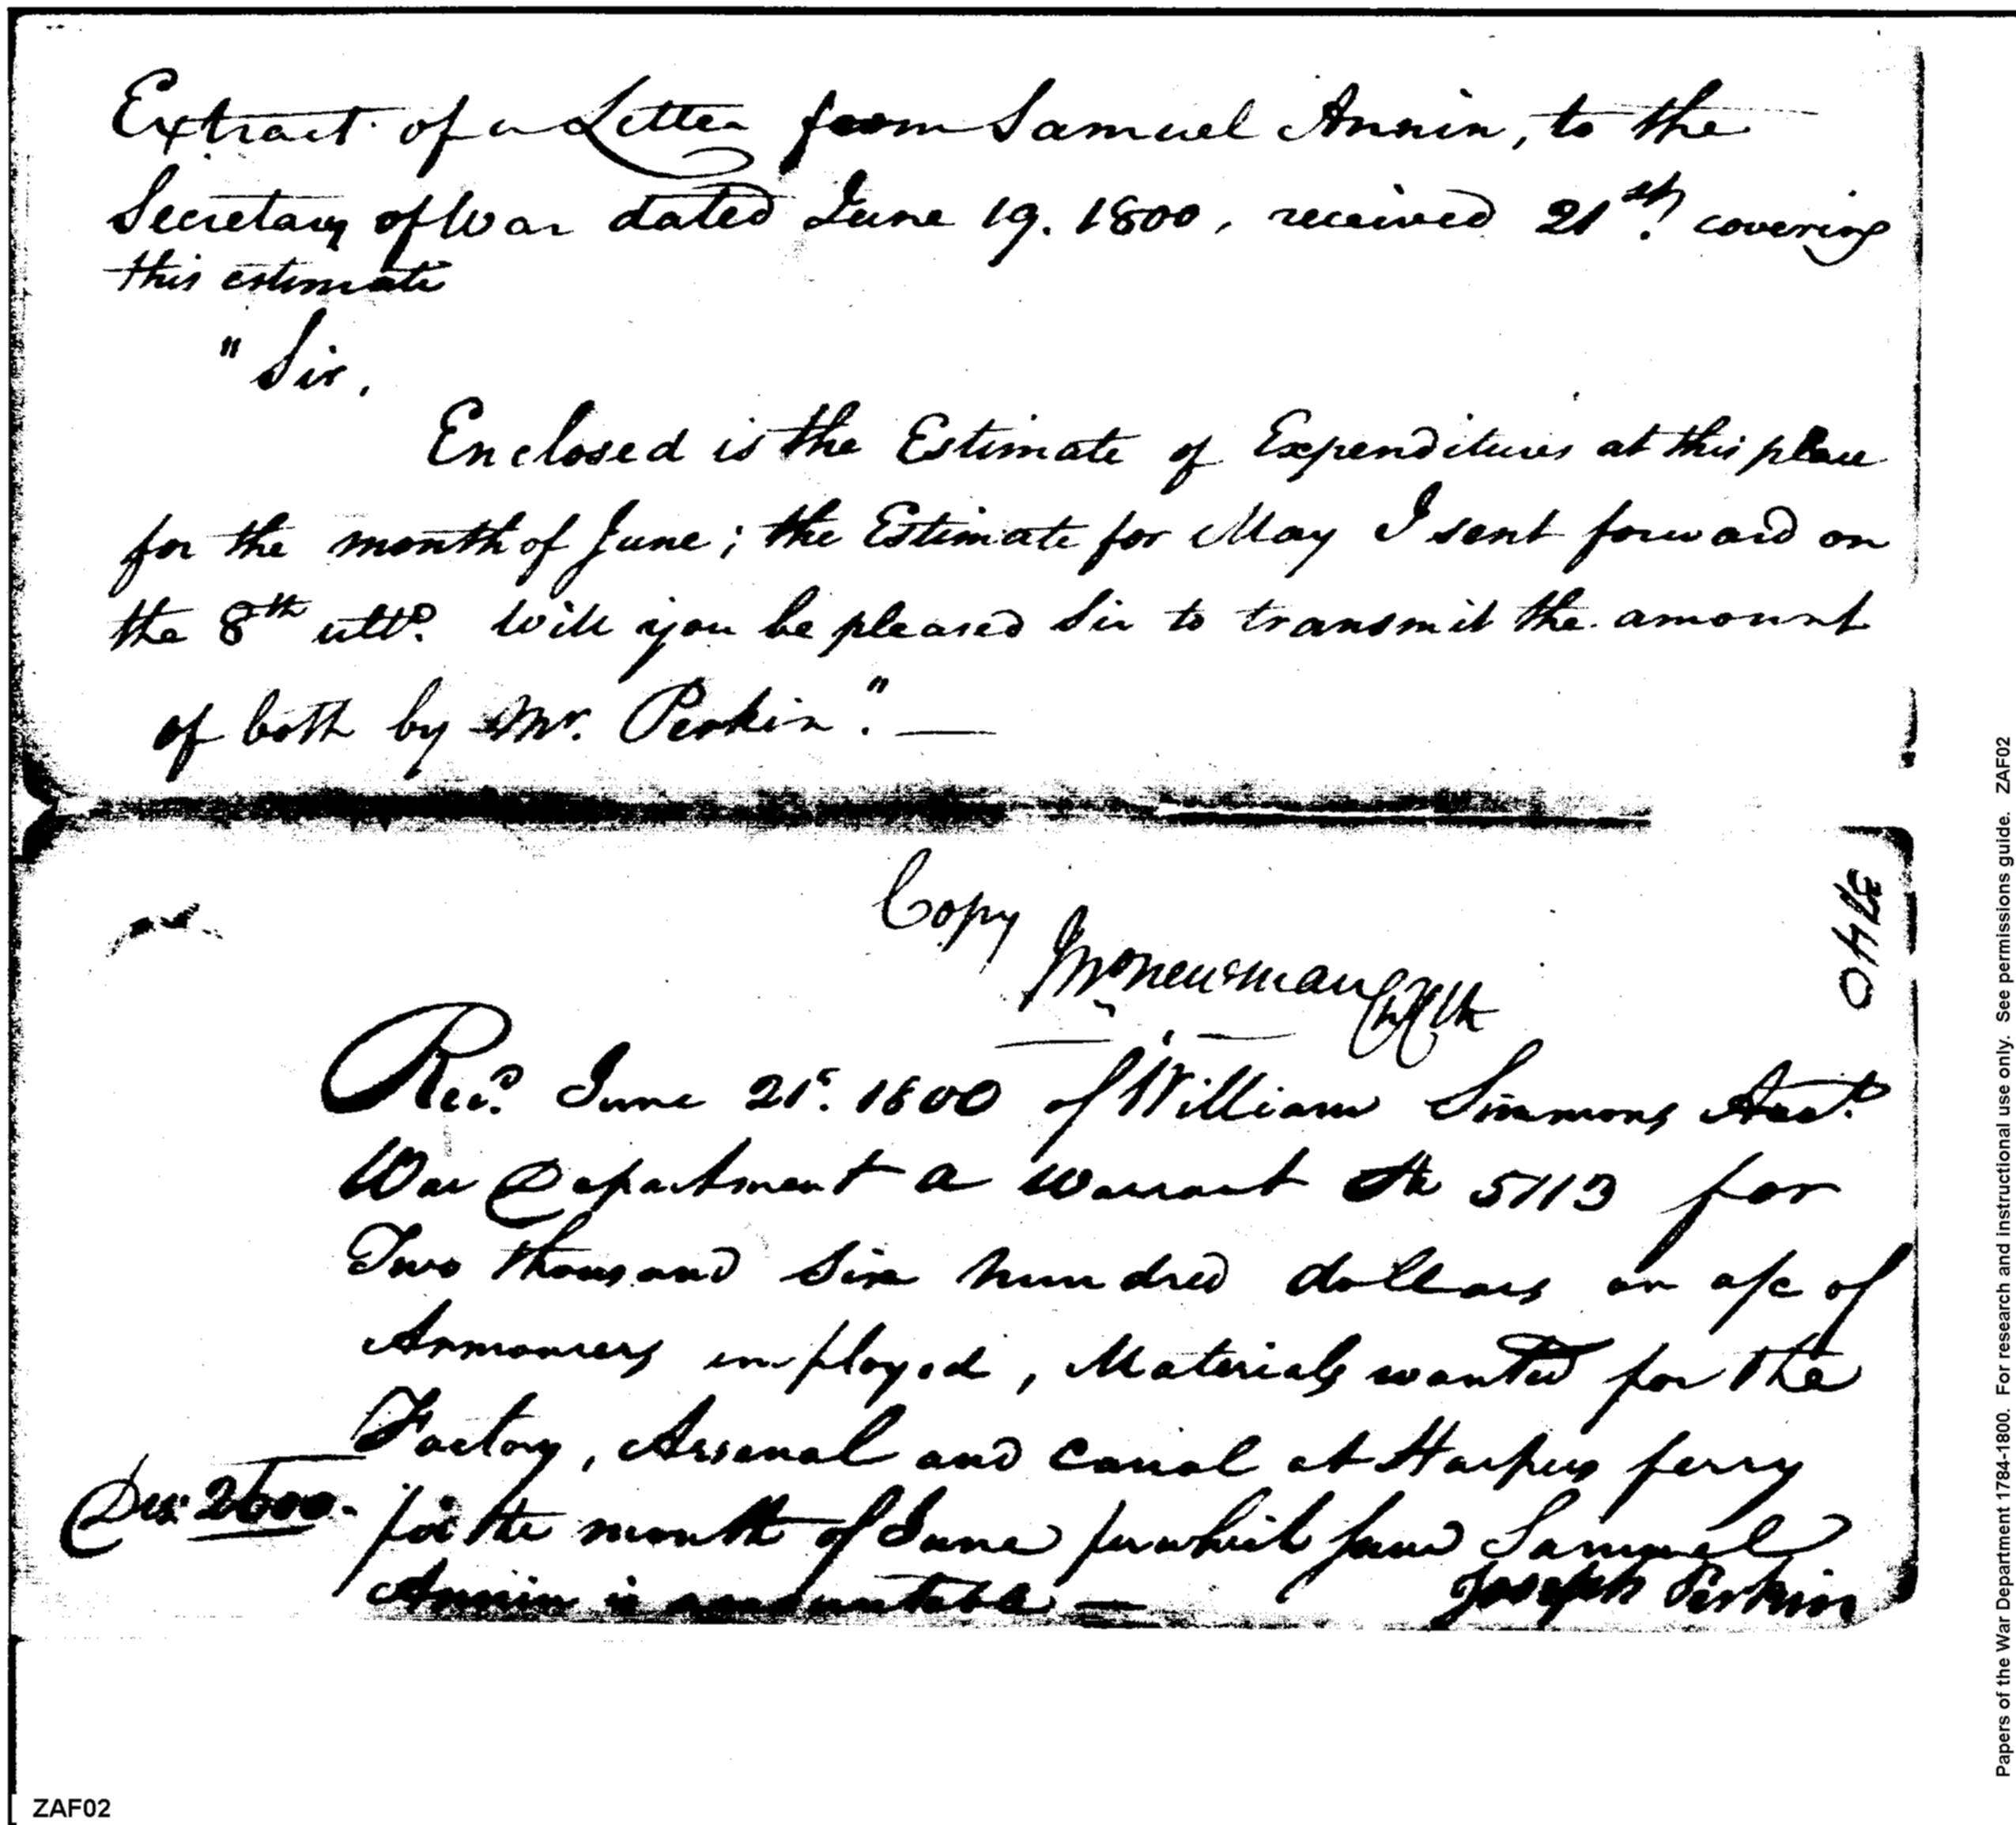 Extract of a Letter from Samuel Annin, to the
Secretary of War dated June 19. 1800, received 21st. covering
this estimate
"Sir,
Enclosed is the Estimate of Expenditures at this place
for the month of June; the Estimate for May I sent forward on
the 8th ulto. Will you be pleased Sir to transmit the amount
of both by Mr. Perkin." —
Copy
Newman
3740
Recd. June 21st. 1800 of William Simmons Acct.
War Department a Warrant No 5113 for
Two thousand Six hundred dollars on a/c of
Armourers employed, Materials wanted for the
Factory, Arsenal and Canal at Harpers ferry
Drs. 2600.- for the month of June for which said Samuel
Annin is accountable —
Joseph Perkin
Papers of the War Department 1784-1800. For research and instructional use only. See permissions guide. ZAF02
ZAF02